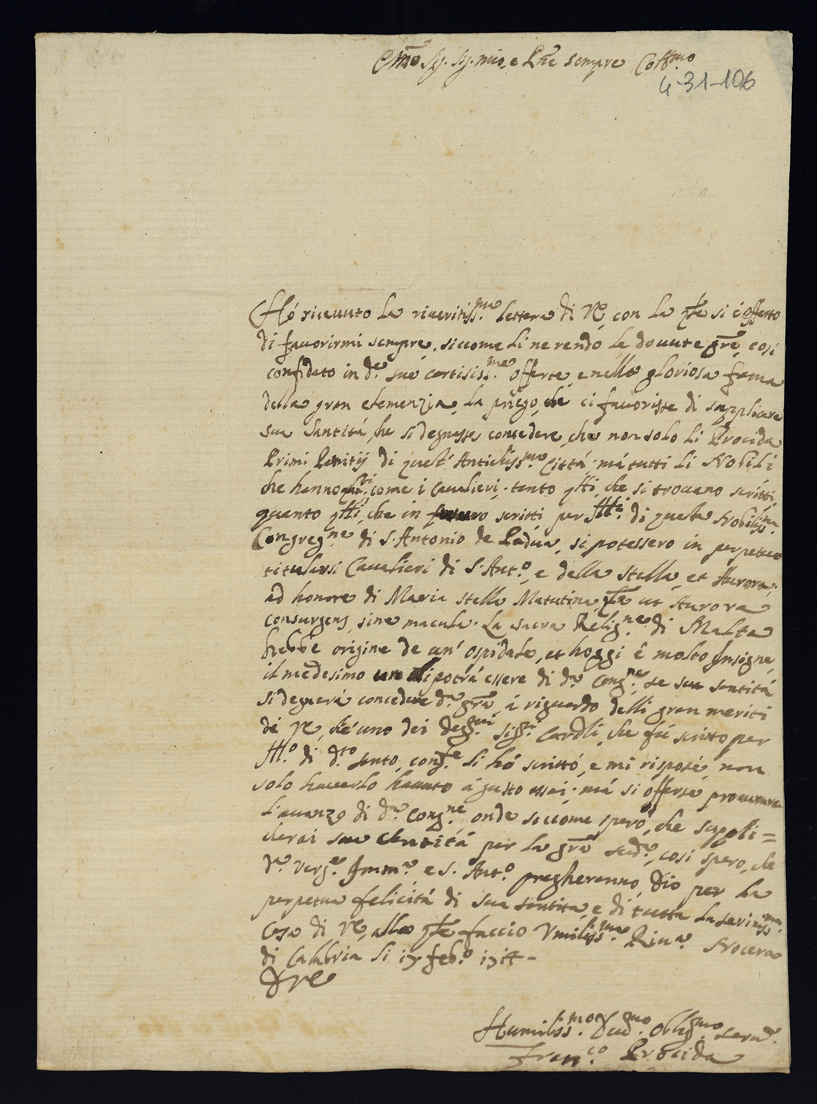 Em̃o Sig. Sig. mio, e Pñe sempre Coll.mo
4-31-106
Hó riceuuto la riueritiss.ma lettera di VE, con la q̃le si é offerto
di fauorirmi sempre, siccome li ne rendo le douute grẽ, cosi
confidato in d.e sue cortisiss.me offerte, e nella gloriosa fama
della gran clemenzia, la priego, che ci fauorisse di supplicare
sua Santitá, che si degnasse concedere, che non solo li Procida
Primi di quest' Antichiss.ma Cittá, má tutti li Nobili
che hanno come i Cauallieri, tanto q̃lli, che si trouano scritti,
quanto q̃lli, che in futuro scritti per f̃lli di questa Nobiliss.ma
Congreg.ne di S. Antonio de Padua, si potessero in perpetuo
titularsi Cauallieri di S. Ant.o, e della stella, et Aurora,
ad honore di Maria stella Matutina q̃ta ut Aurora
consurgens, sine macula. La sacra Relig.ne di Malta
hebbe origine de un' ospidale, et hoggi é molto insigne,
il medesimo potrá essere di d.a Cong.ne, se sua santitá
si degnerá concedere d.a grã, á riguardo delli gran meriti
de VE, ch'é uno dei deg.mi Sig.ri Cardli, che fú scritto per
f̃llo di d.to santo, conf.e li há scritto, e mi rispose, non
solo hauerlo hauuto á gusto assai, má si offerse procurare
l'auanzo di d.a Cong.ne onde siccome spero, che suppli=
cherai sua santitá per la grã sud.a, cosi spero, che
d.a Verg.e Imm.a e S. Ant.o pregheranno Dio per la
perpetua felicitá di sua santita, e di tutta la sereniss.ma
Casa di VE, alla q̃le faccio Vmiliss.ma Riu.a Nocera
di Calabria li 17 feb.o 17
D VE
Humiliss.mo Deu.mo Oblig.mo seru.e
Fran.co Procida